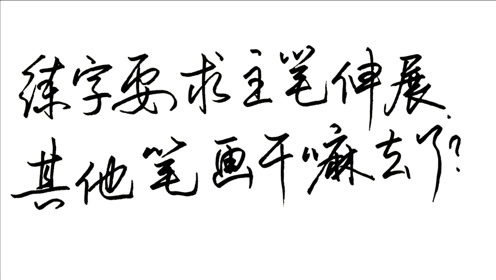 练字要求主笔伸展.
其他笔画干嘛去了?